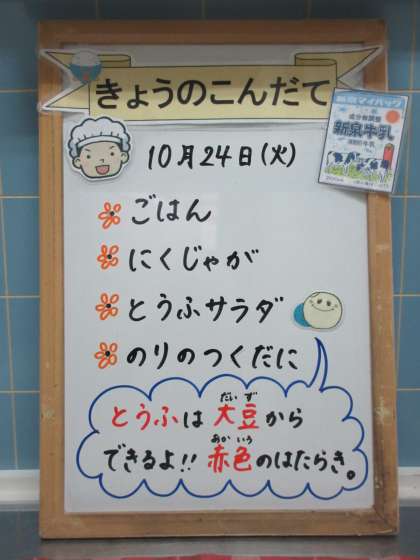 きょうのこんだて
新泉牛乳
10月24日(火)
ごはん
にくじゃが
とうふサラダ
のりのつくだに
とうふは大豆から
だいず
できるよ!!赤色のはたらき。
あかいろ